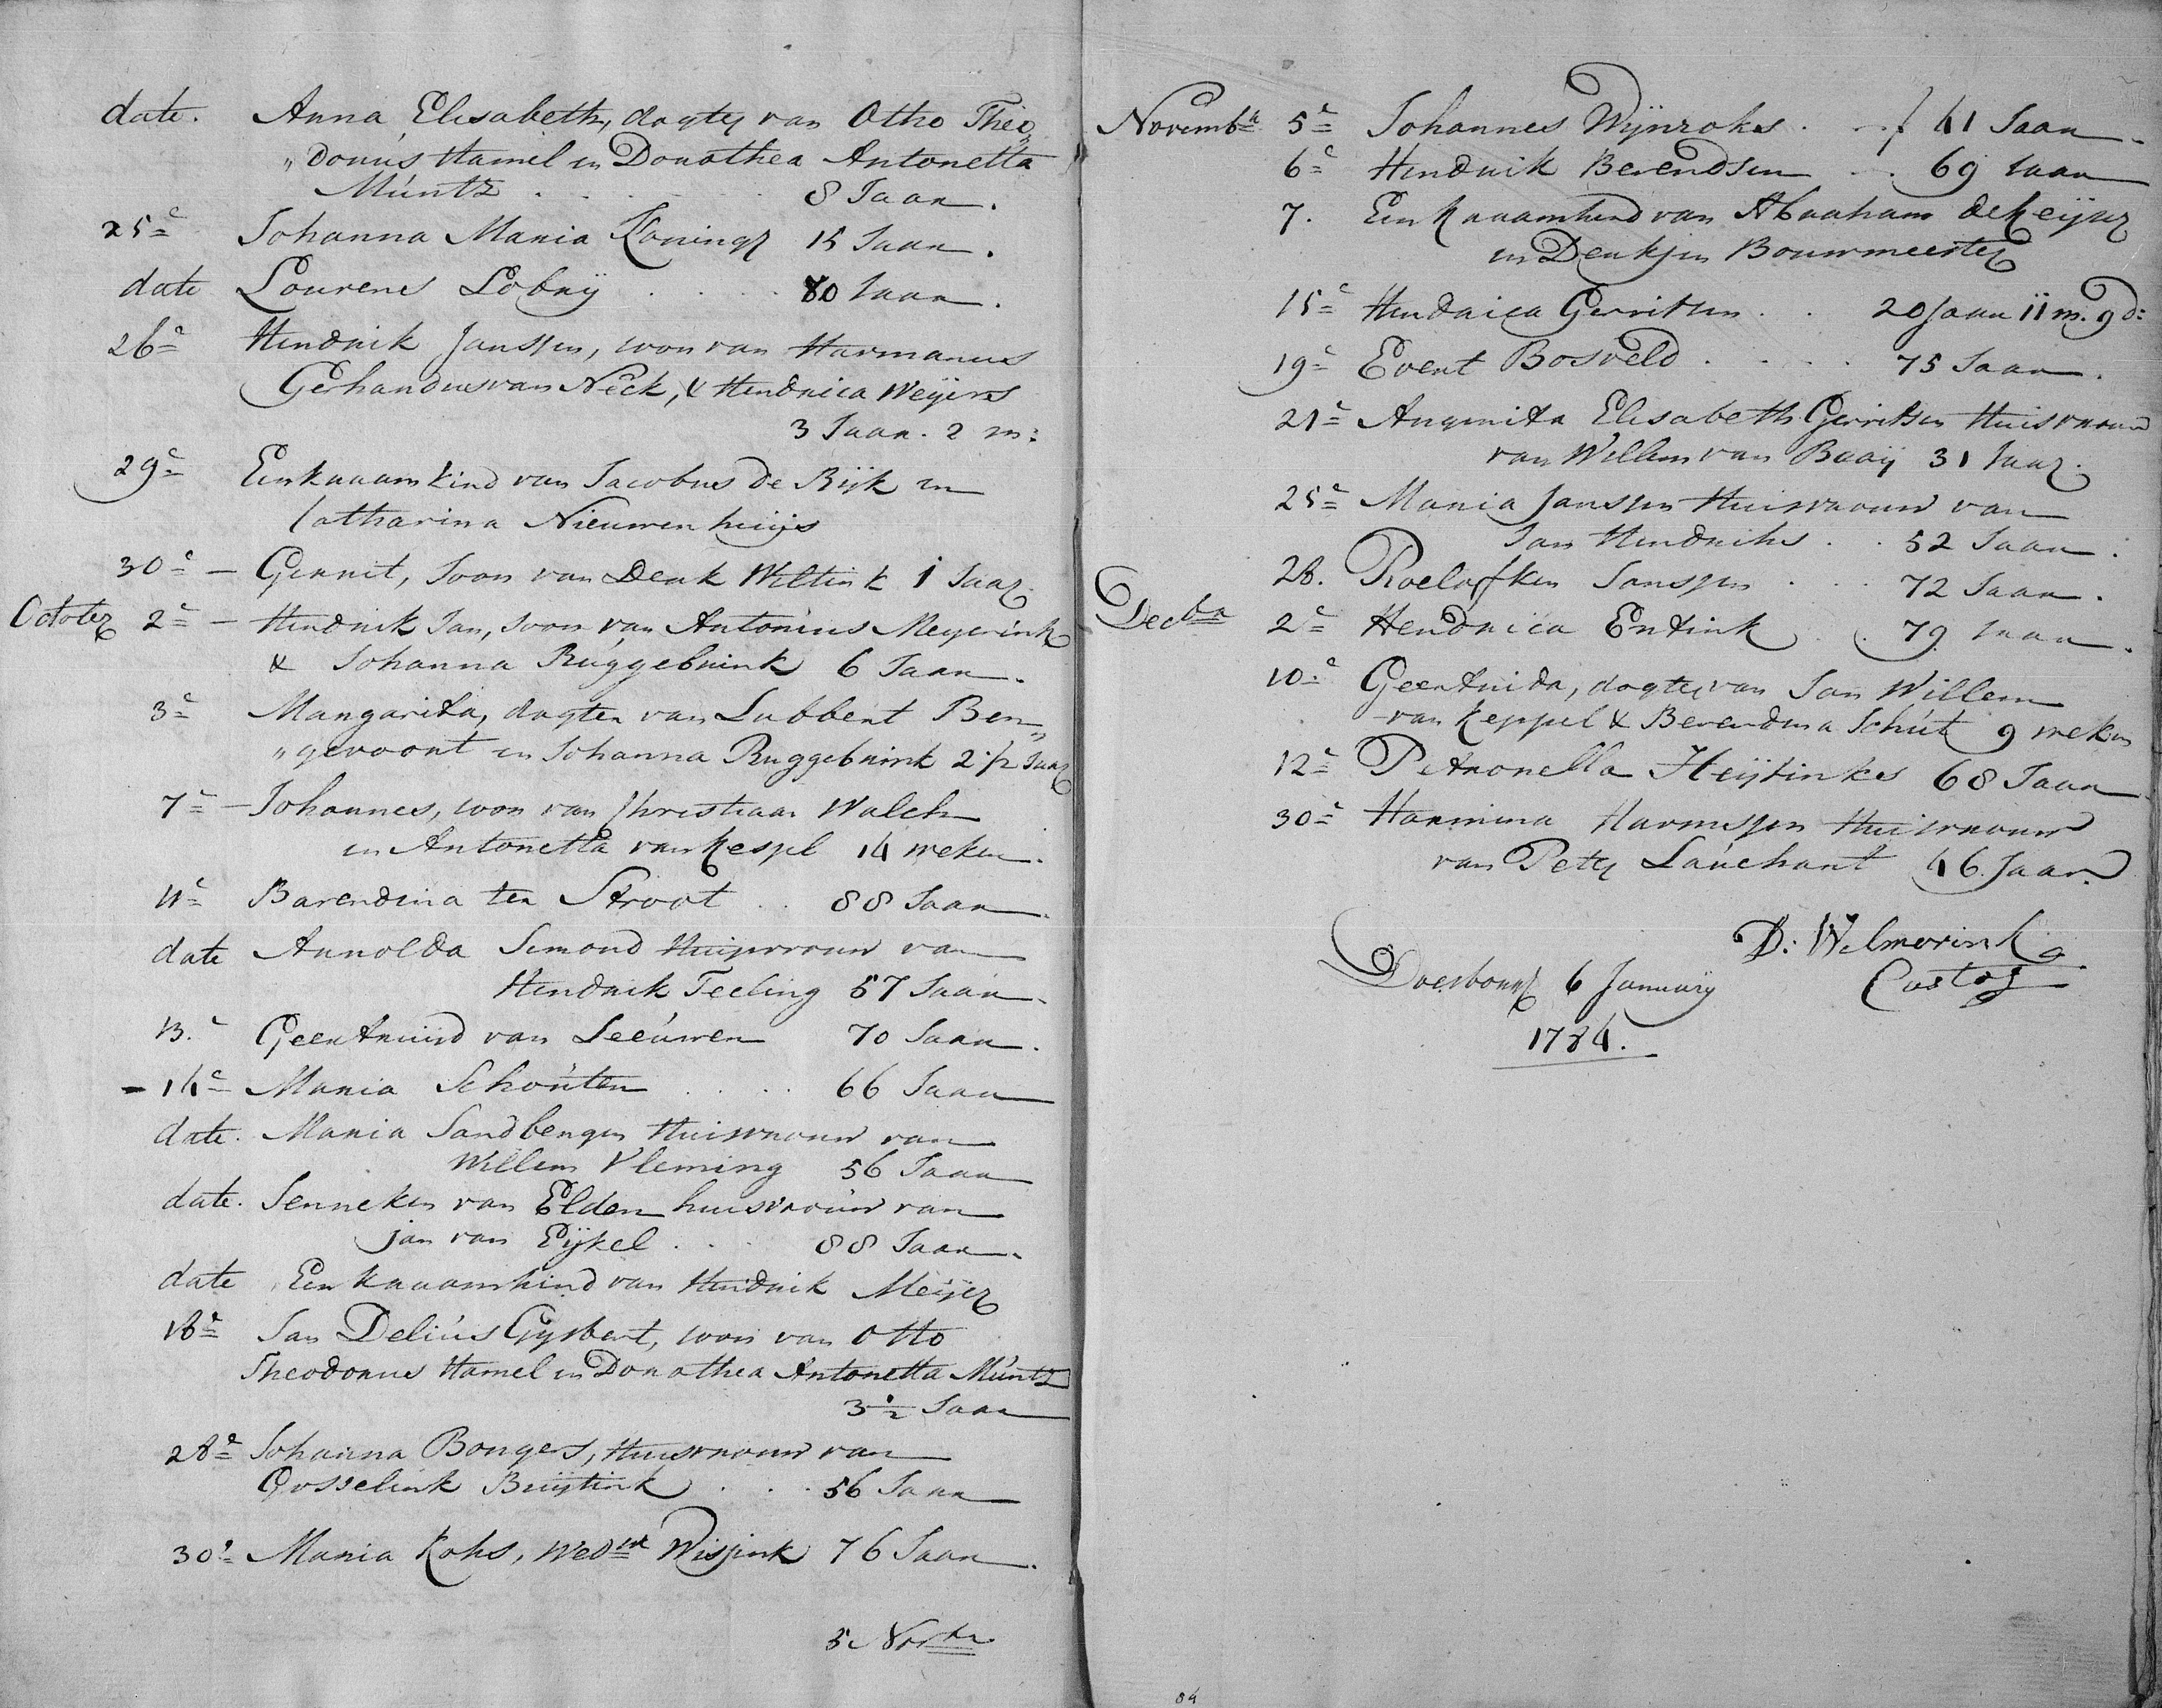 date. Anna Elisabeth, dogter van Otho Theo„
„dorus Hamel en Dorothea Antonetta
Muntz . . . 8 Jaar.
25e Johanna Maria Konings 15 Jaar.
date Lourens Lobrij . . . 80 Jaar.
26e Hendrik Janssen, soon van Harmanus
Gerhardus van Neck, & Hendrica Weijers
3 Jaar. 2 m:
29e Een kraam kind van Jacobus de Rijk en
Catharina Nieuwenhuijs
30e — Gerrit, Soon van Derk Wiltink 1 Jaar.
October 2e — Hendrik Jan, soon van Antonius Meyerink
& Johanna Ruggebrink 6 Jaar.
3e Margarita, dogter van Lubbert Ben„
„gevoort en Johanna Ruggebrink 2 1/2 Jaar
7e — Johannes, soon van Christiaan Walch
en Antonetta van Keppel 14 weken.
11e Barendina ten Stroot . . 88 Jaar.
date Arnolda Semond Huisvrouw van
Hendrik Teeling 57 Jaar.
13. Geertruid van Leeuwen 70 Jaar.
- 14e Maria Schouten . . . 66 Jaar
date. Maria Sandbergen Huisvrouw van
Willem Vleming 56 Jaar
date. Jenneken van Elden huisvrouw van
jan van Eijkel . . . 88 Jaar.
date Een kraamkind van Hendrik Meijer
18e Jan Delius Gysbert, soon van Otto
Theodorus Hamel en Dorothea Antonetta Muntz
3 1/2 Jaar
28e Johanna Bongers, Huisvrouw van
Gosselink Buijtink . . . 56 Jaar
30e Maria Koks, Wedwe Wissink 76 Jaar.
5 Novbr
Novembr 5e Johannes Wijnroks . . . 41 Jaar.
6e Hendrik Berendsen . . 69 Jaar
7. Een Kraamkind van Abraham de Keijser
en Derkjen Bouwmeester
15e Hendrica Gerritsen . . 20 Jaar 11 m. 9 d:
19e Evert Bosveld . . . . 75 Jaar.
21e Angenita Elisabeth Gerritsen Huisvrouw
van Willem van Baaij 31 Jaar.
25e Maria Janssen Huisvrouw van
Jan Hendriks . . 52 Jaar.
28. Roelofken Janssen . . . 72 Jaar.
Decbr 2e Hendrica Entink . . 79 Jaar.
10e Geertruida, dogter van Jan Willem
van Keppel & Berendina Schut 9 weken
12e Petronella Heijtinks 68 Jaar.
30e Harmina Harmsen Huisvrouw
van Peter Lauchant 46 Jaar.
D: Welmerink
Custos
Doesborg 6 January
1784.
84